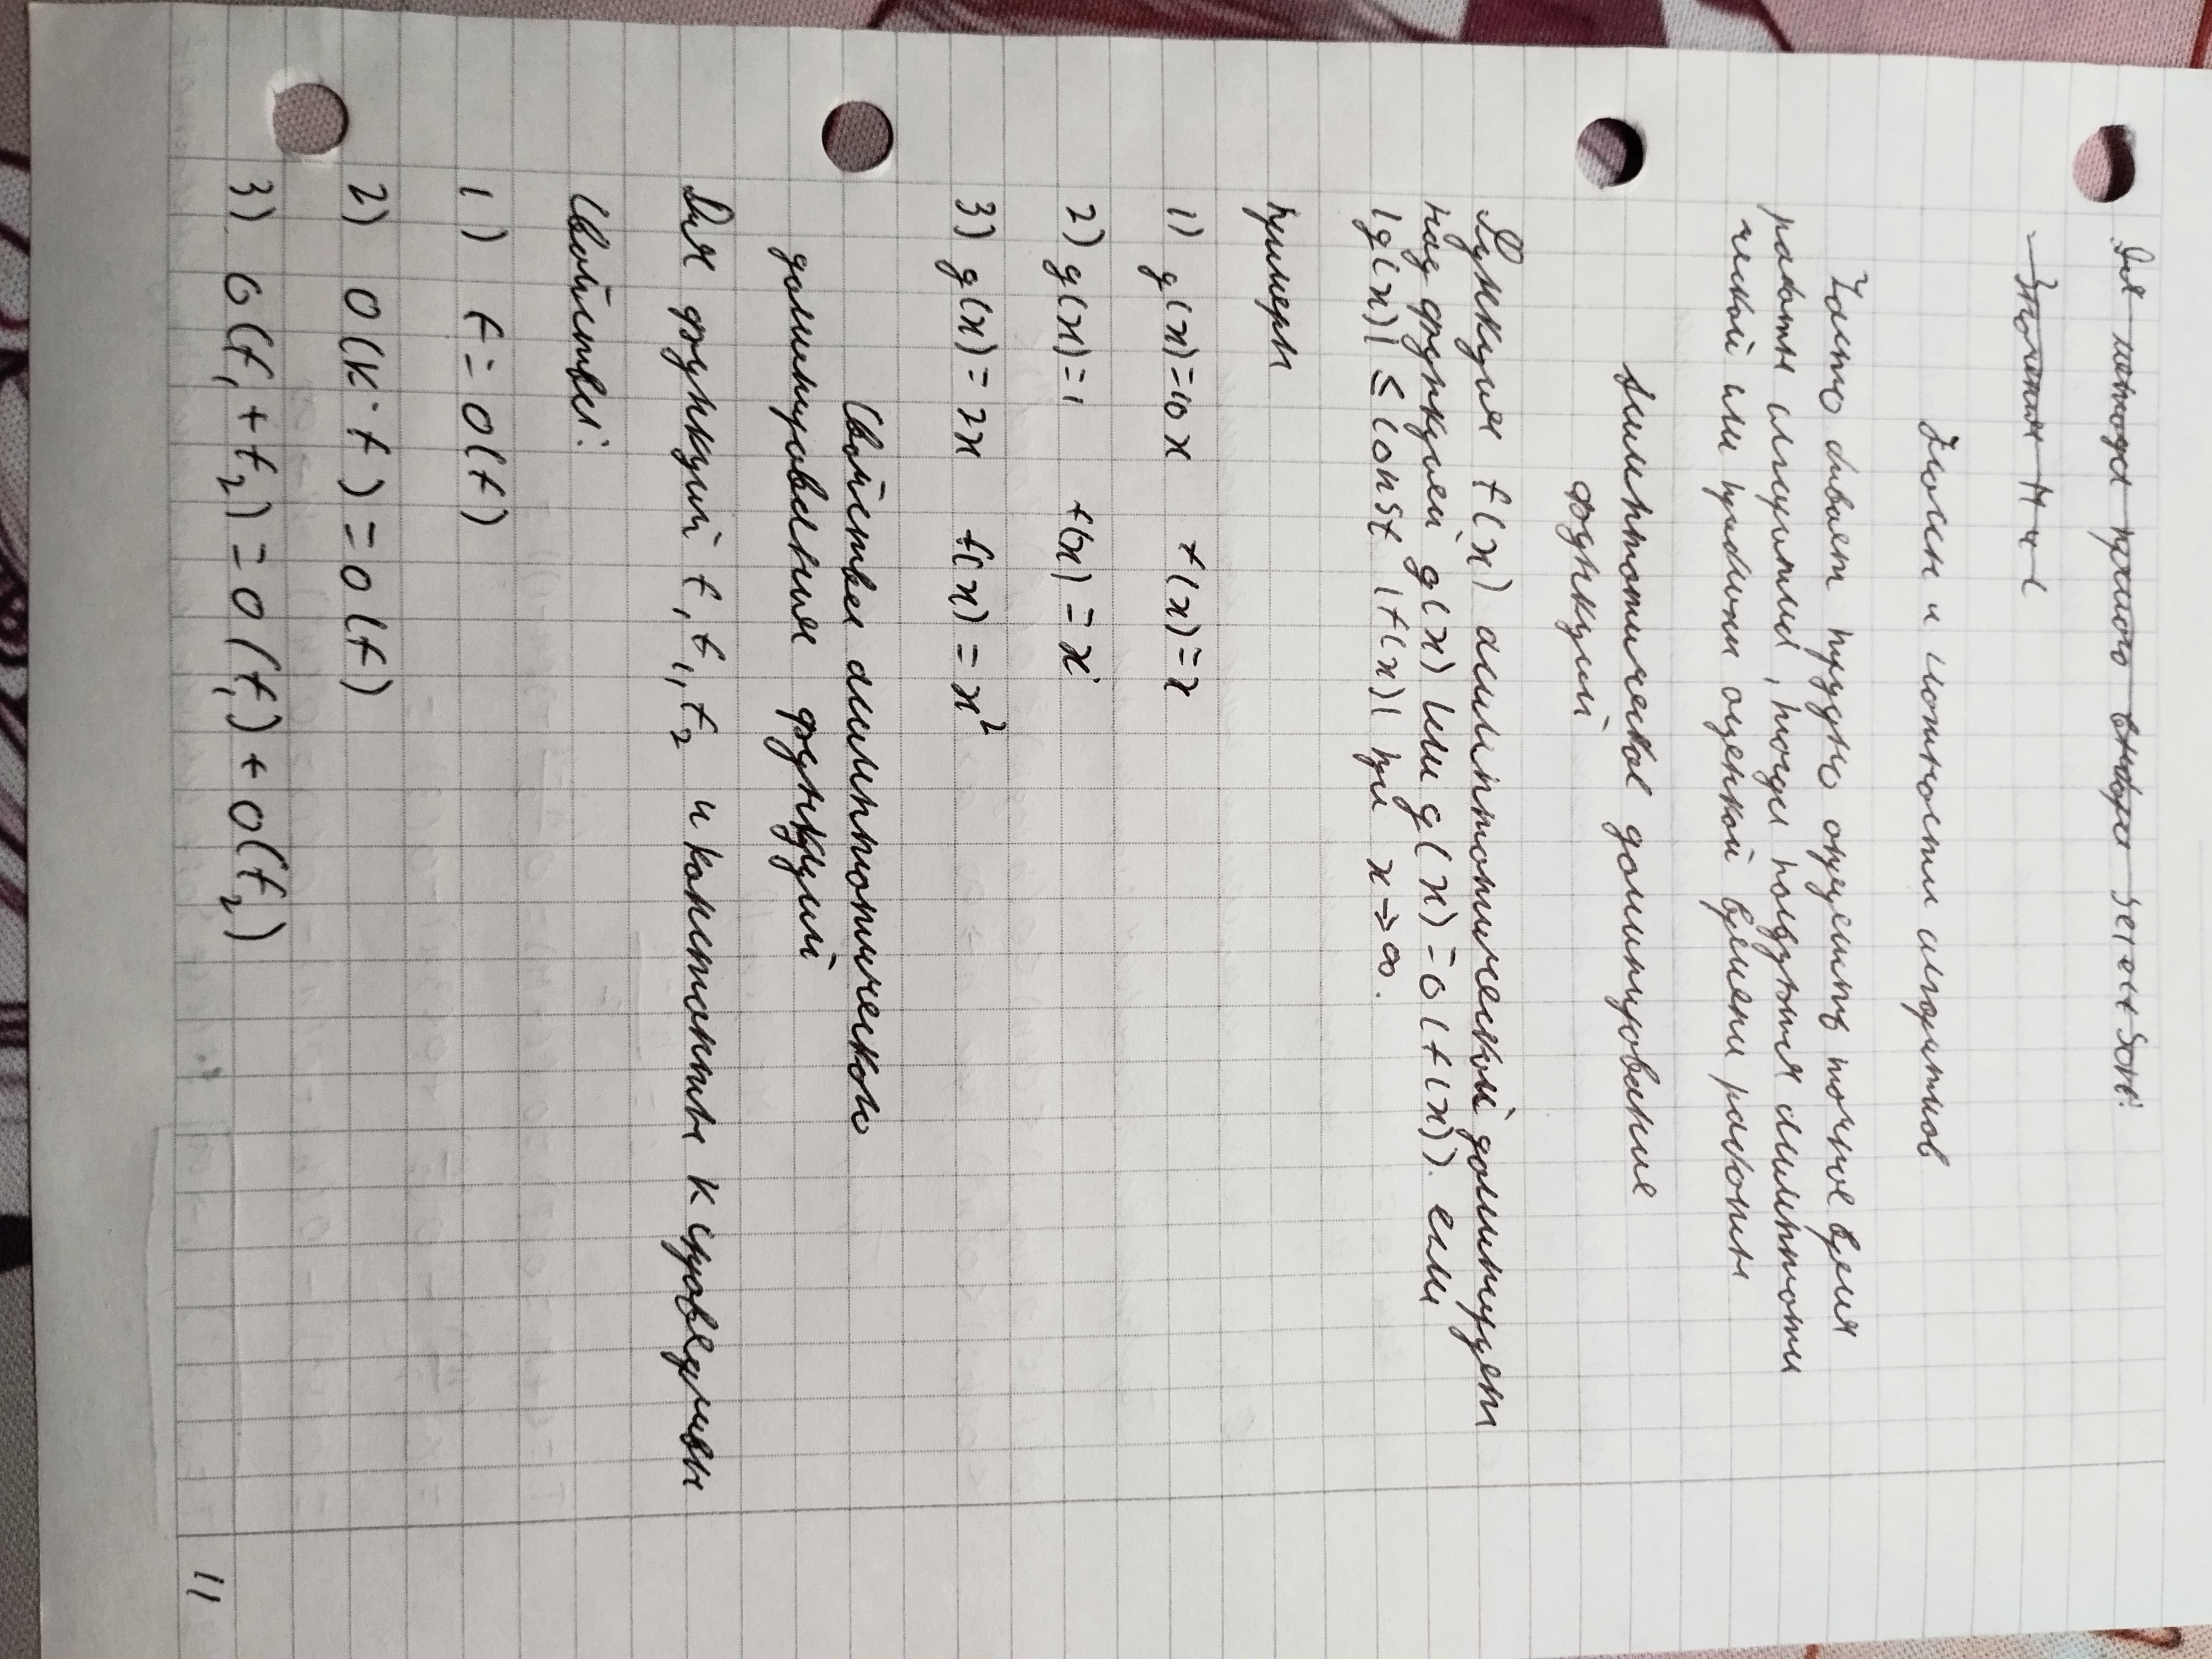 Для метода прямого выбора SelectSort:
Значения М и С
и сложности алгоритмов
Часто бывает трудно определить точное время
работы алгоритма, тогда пользуются асимптоти
ческой или оценкой времени работы
Асимптотическое доминирование
функций
Функция f(x) асимптотической доминирует
над функцией g(x) или g(x)=O(f(x)). если
|g(x)| ≤ const |f(x)| при x→∞.
Примеры
1) g(x)=10x f(x)=x
2) g(x)=1 f(x)=x
3) g(x)=2x f(x)=x²
Свойства асимптотического
доминирования функций
Для функций f, f₁, f₂ и константы K справедливы
Свойства:
1) f=O(f)
2) O(K·f)=O(f)
3) O(f₁+f₂)=O(f₁)+O(f₂)
11